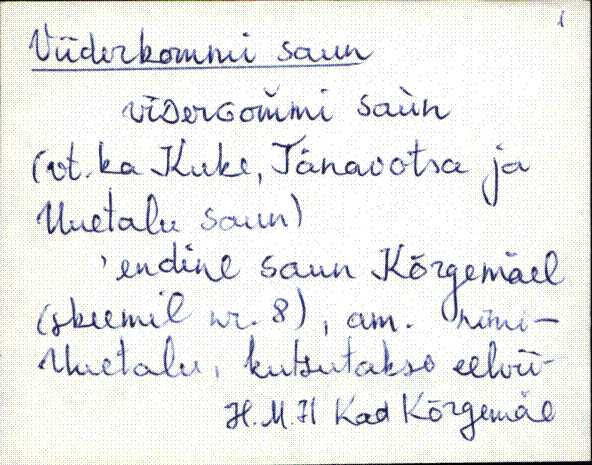 1
Viiderkommi saun
vīDerGom̆mi saùn
(vt. ka Kuke, Tänavotsa ja
Uuetalu saun)
'endine saun Kõrgemäel
(skeemil nr. 8), am. nimi-
Uuetalu, kutsutakse eelvii-
H.M.H Kad Kõrgemäe